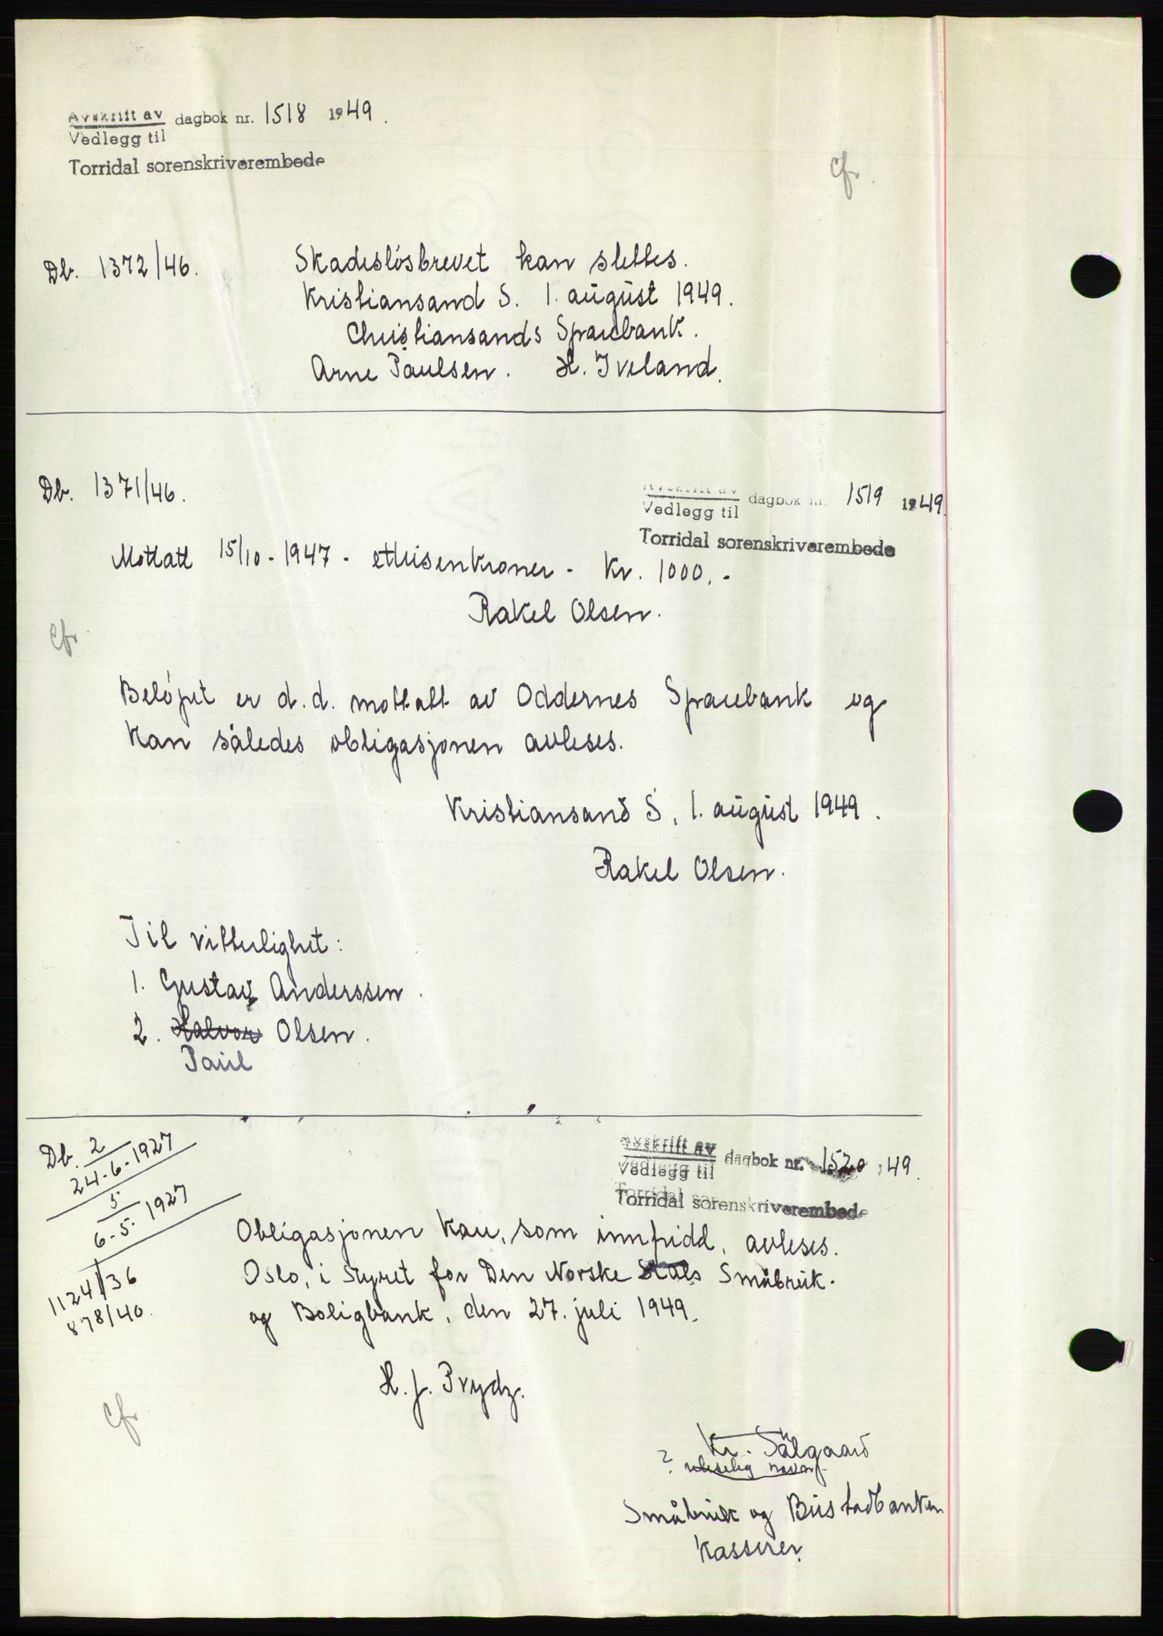 Avskrift av dagbok nr. 1518 1949.
Vedlegg til
Torridal sorenskriverembede
cfr.
Db. 1372/46. Skadesløsbrevet kan slettes.
Kristiansand S. 1. august 1949.
Christiansands Sparebank.
Arne Paulsen. H. Iveland.
Db. 1371/46.
Avskrift av dagbok nr. 1519 1949.
Vedlegg til
Torridal sorenskriverembede
Mottatt 15/10-1947 - ettusenkroner - kr. 1000.-
Rakel Olsen.
cfr.
Beløpet er d.d. mottatt av Oddernes Sparebank og
kan således obligasjonen avleses.
Kristiansand S, 1. august 1949.
Rakel Olsen.
Til vitterlighet:
1. Gustav Anderssen.
2. Halvor Olsen.
Paul
Db. 2
24-6-1927
5
6-5-1927
1124/36
878/40.
Avskrift av dagbok nr. 1520, 49.
Vedlegg til
Torridal sorenskriverembede
Obligasjonen kan, som innfridd, avleses.
Oslo, i styret for Den Norske Stats Småbruk-
og Boligbank, den 27. juli 1949.
H. J. Prydz.
cfr
Kr. Sälgaard
? uleselig navn
Småbruk og Bustadbanken
Kasserer.